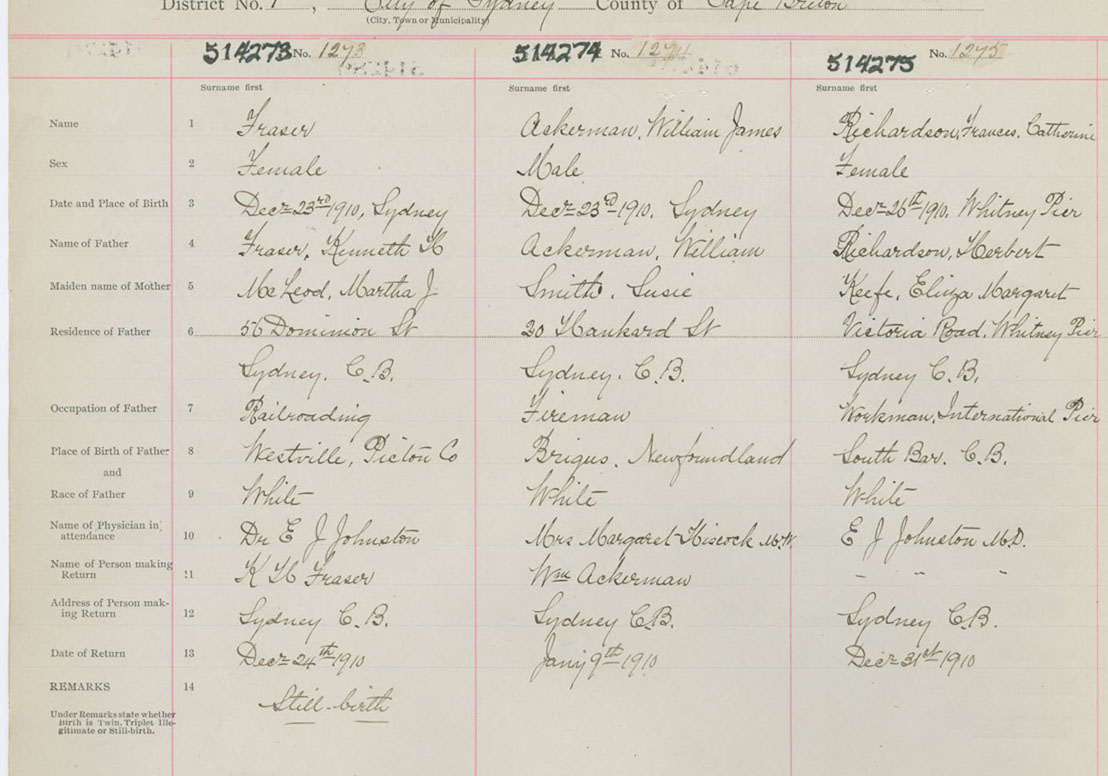 District No. 1, City of Sydney County of Cape Breton
(City, Town or Municipality)
514273 No. 1273 514274 No. 1274 514275 No. 1275
Surname first Surname first Surname first
Name 1 Fraser Ackerman, William James Richardson, Frances, Catherine
Sex 2 Female Male Female
Date and Place of Birth 3 Decr 23rd 1910, Sydney Decr 23rd 1910, Sydney Decr 26th 1910, Whitney Pier
Name of Father 4 Fraser, Kenneth Ackerman, William Richardson, Herbert
Maiden name of Mother 5 McLeod, Martha J Smith, Susie Keefe, Eliza Margaret
Residence of Father 6 Dominion St 20 Hankard St Victoria Road, Whitney Pier
Sydney, C.B. Sydney, C.B. Sydney C.B.
Occupation of Father 7 Railroading Fireman Workman, International Pier
Place of Birth of Father 8 Westville, Picton Co Brigus, Newfoundland South Bar, C.B.
and
Race of Father 9 White White White
Name of Physician in attendance 10 Dr E J Johnston Mrs Margaret Hiscock M.W. E J Johnston M.D.
Name of Person making Return 11 K Fraser Wm Ackerman " " "
Address of Person mak-ing Return 12 Sydney C.B. Sydney C.B. Sydney C.B.
Date of Return 13 Decr 24th 1910 Jany 9th 1910 Decr 31st 1910
REMARKS 14 Still-birth
Under Remarks state whether
Birth is Twin, Triplet, Ille-
gitimate or Still-birth.